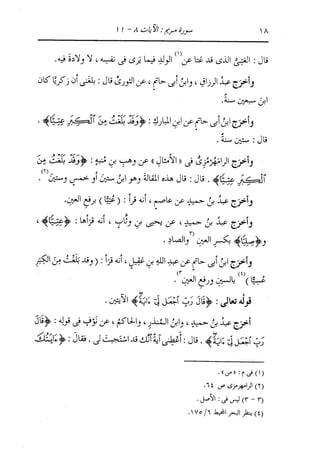 ١٨ سورة مريم : الآيات ٨ - ١١
قال : العِتِىُّ الذى قد عَتا عن(١) الولدِ فيما يَرَى فى نفسِه ، لا ولادةَ فيه .
وأخرَج عبدُ الرزاقِ ، وابنُ أبى حاتمٍ ، عن الثورىِّ قال : بلَغنى أن زكريَّا كان
ابنَ سبعينَ سنةً .
وأخرَج ابنُ أبى حاتمٍ عن ابنِ المباركِ : ﴿وَقَدْ بَلَغْتُ مِنَ ٱلْكِبَرِ عِتِيًّا﴾ .
قال : ستين سنة .
وأخرَج الرامَهُرْمُزىُّ فى « الأمثالِ » عن وهبِ بنِ منبهٍ : ﴿وَقَدْ بَلَغْتُ مِنَ
ٱلْكِبَرِ عِتِيًّا﴾ . قال : قال هذه المقالةَ وهو ابنُ ستينَ أو خمسٍ وستينَ(٢) .
وأخرَج عبدُ بنُ حميدٍ عن عاصمٍ ، أنه قرَأ : ( عُتِيًّا ) برفعِ العينِ .
وأخرَج عبدُ بنُ حميدٍ ، عن يحيى بنِ وثَّابٍ ، أنه قرَأها : ﴿عِتِيًّا﴾ ،
و﴿صِلِيًّا﴾ بكسرِ العينِ (٣) والصادِ .
وأخرَج ابنُ أبى حاتمٍ عن عبدِ اللهِ بنِ عقيلٍ ، أنه قرَأ : ( وقد بلغتُ مِنَ الكِبَرِ
عُسِيًّا )(٤) بالسينِ ورفعِ العينِ(٣) .
قولُه تعالى : ﴿قَالَ رَبِّ ٱجْعَل لِّىٓ ءَايَةً﴾ الآيتين .
أخرَج عبدُ بنُ حميدٍ ، وابنُ المنذرِ ، والحاكمُ ، عن نَوْفٍ فى قولِه : ﴿قَالَ
رَبِّ ٱجْعَل لِّىٓ ءَايَةً﴾ . قال : أعْطِنى آيةَ أنَّك قد استجبتَ لى . فقال : ﴿ءَايَتُكَ
(١) فى م : « من » .
(٢) الرامهرمزى ص ٦٤ .
(٣ - ٣) ليس فى : الأصل .
(٤) ينظر البحر المحيط ٦/ ١٧٥ .